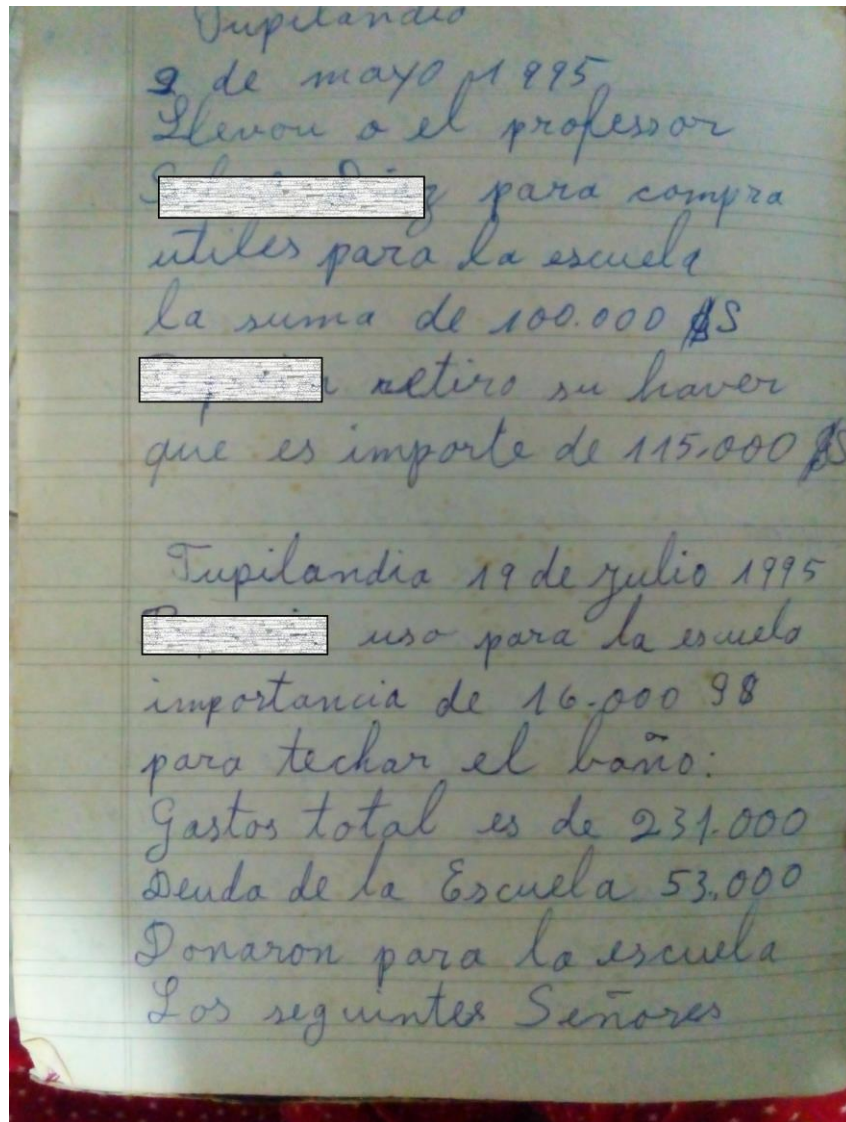 Tupilandia
9 de mayo 1995
Llevou o el professor
para compra
utiles para la escuela
la suma de 100.000 $S
retiro su haver
que es importe de 115.000 $S
Tupilandia 19 de julio 1995
uso para la escuela
importancia de 16.000 98
para techar el baño:
Gastos total es de 231.000
Deuda de la Escuela 53.000
Donaron para la escuela
Los seguintes Señores